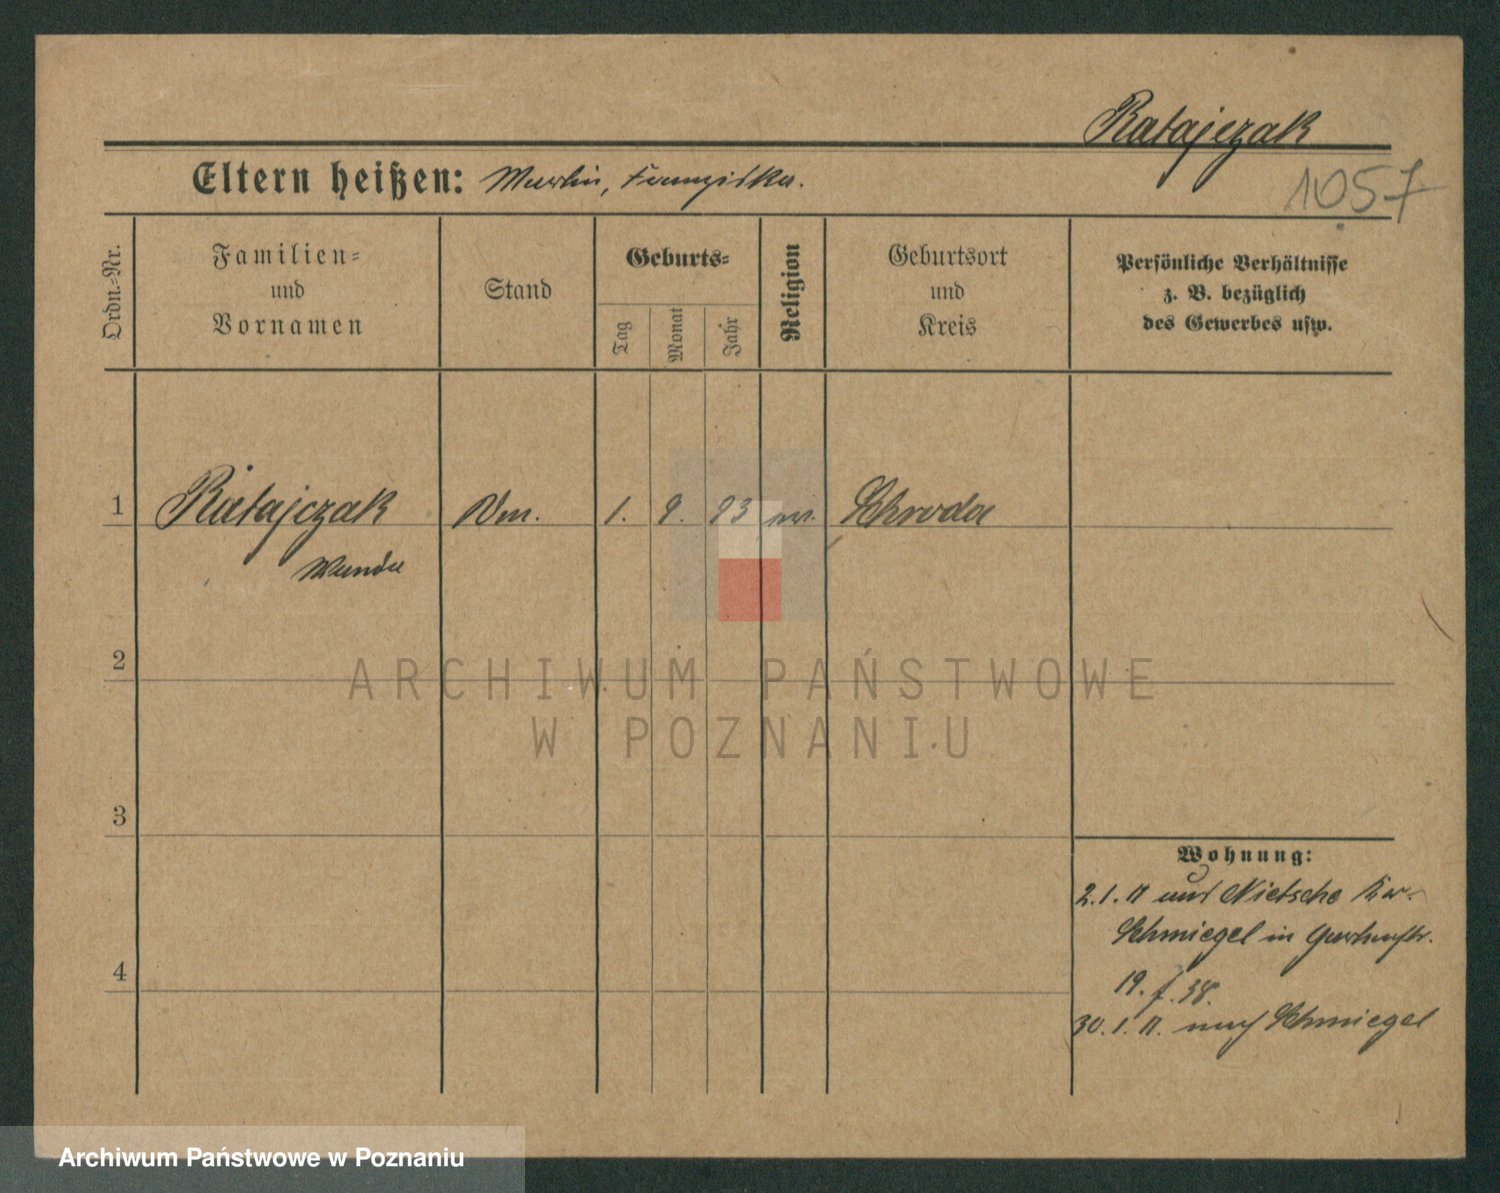 Ratajczak
1057
Eltern heißen: Martin, Franziska.
Ordn.-Nr.
Familien-
und
Vornamen
Stand
Geburts-
Tag
Monat
Jahr
Religion
Geburtsort
und
Kreis
Persönliche Verhältnisse
z. B. bezüglich
des Gewerbes usw.
1 Ratajczak 1. 9. 93 Schroda
Wanda
2
3
4
Wohnung:
2. 1. 11 aus Nietsche Kr.
Schmiegel in Gartenstr.
19. f. 38.
30. 1. 11. nach Schmiegel
ARCHIWUM PAŃSTWOWE
W POZNANIU
Archiwum Państwowe w Poznaniu